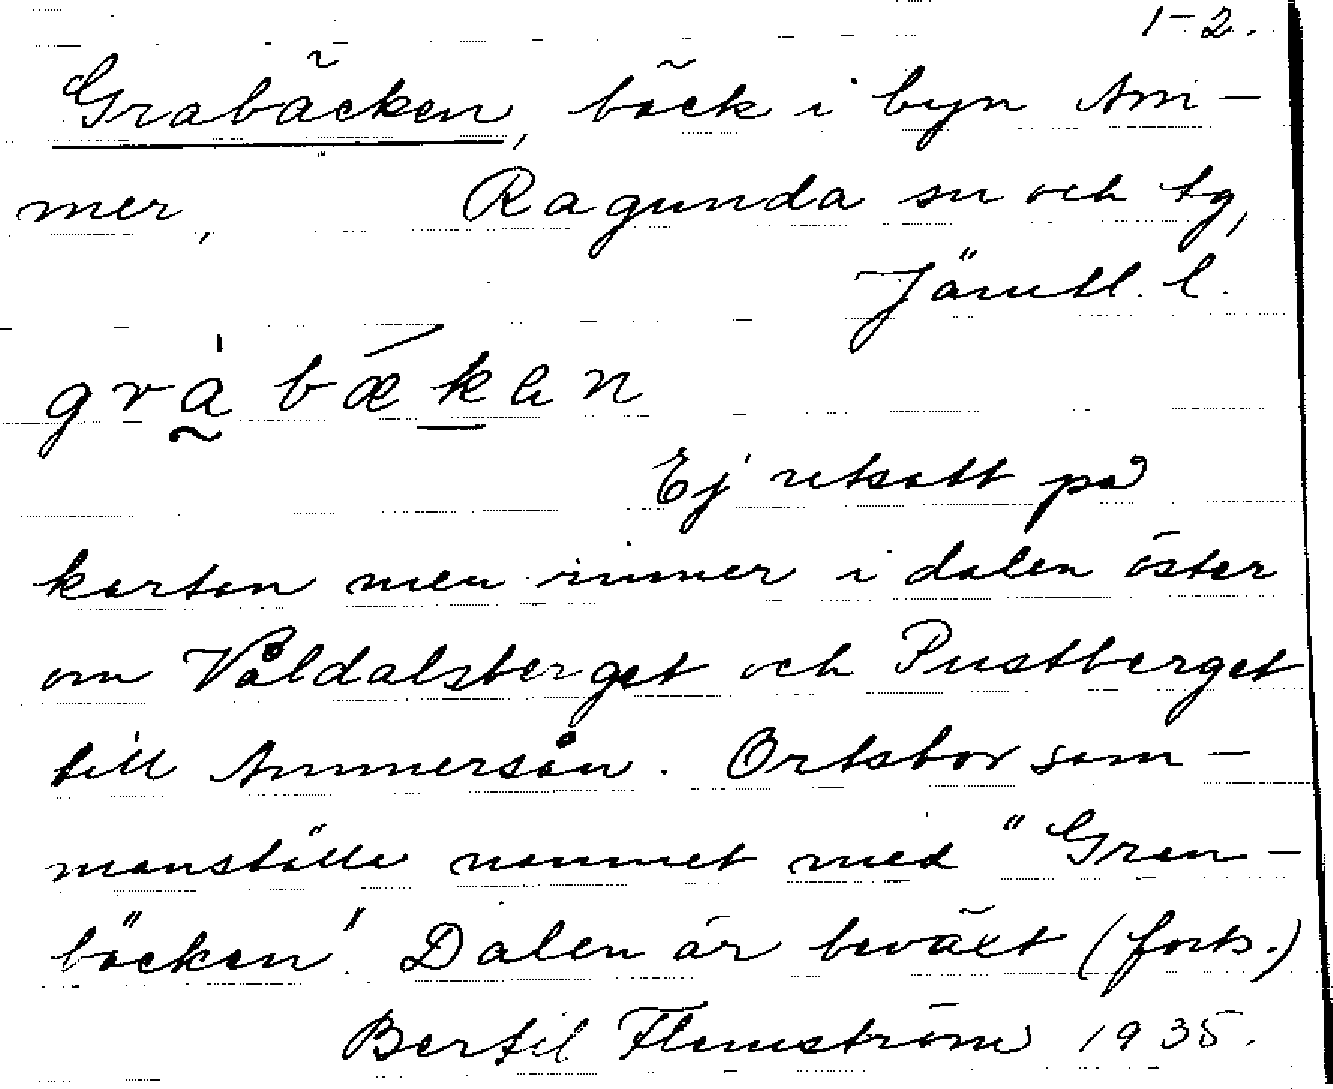 1-2.
Grabäcken, bäck i byn Am-
mer, Ragunda sn och tg,
Jämtl. l.
gràbǽkan
Ej utsatt på
kartan men rinner i dalen öster
om Våldalsberget och Pustberget
till Ammersån. Ortsbor sam-
manställa namnet med "Gran-
bäcken". Dalen är beväxt (forts.)
Bertil Flemström 1935.